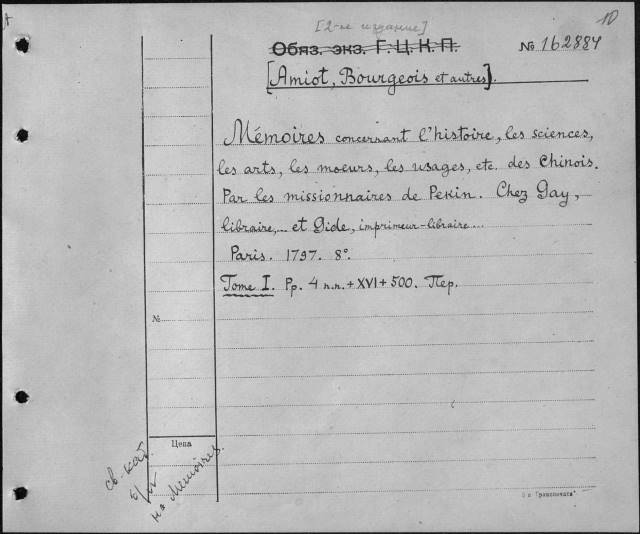 [2-ое издание]
10
Обяз. экз. Г. Ц. К. П.
№ 162884
[Amiot, Bourgeois et autres].
Mémoires concernant l'histoire, les sciences,
les arts, les moeurs, les usages, etc. des Chinois.
Par les missionnaires de Pekin. Chez Gay,
libraire,... et Gide, imprimeur-libraire...
Paris. 1797. 8°.
Tome I. Pp. 4 n.n. + XVI + 500. Пер.
№
Цена
св. кат.
на Mémoires.